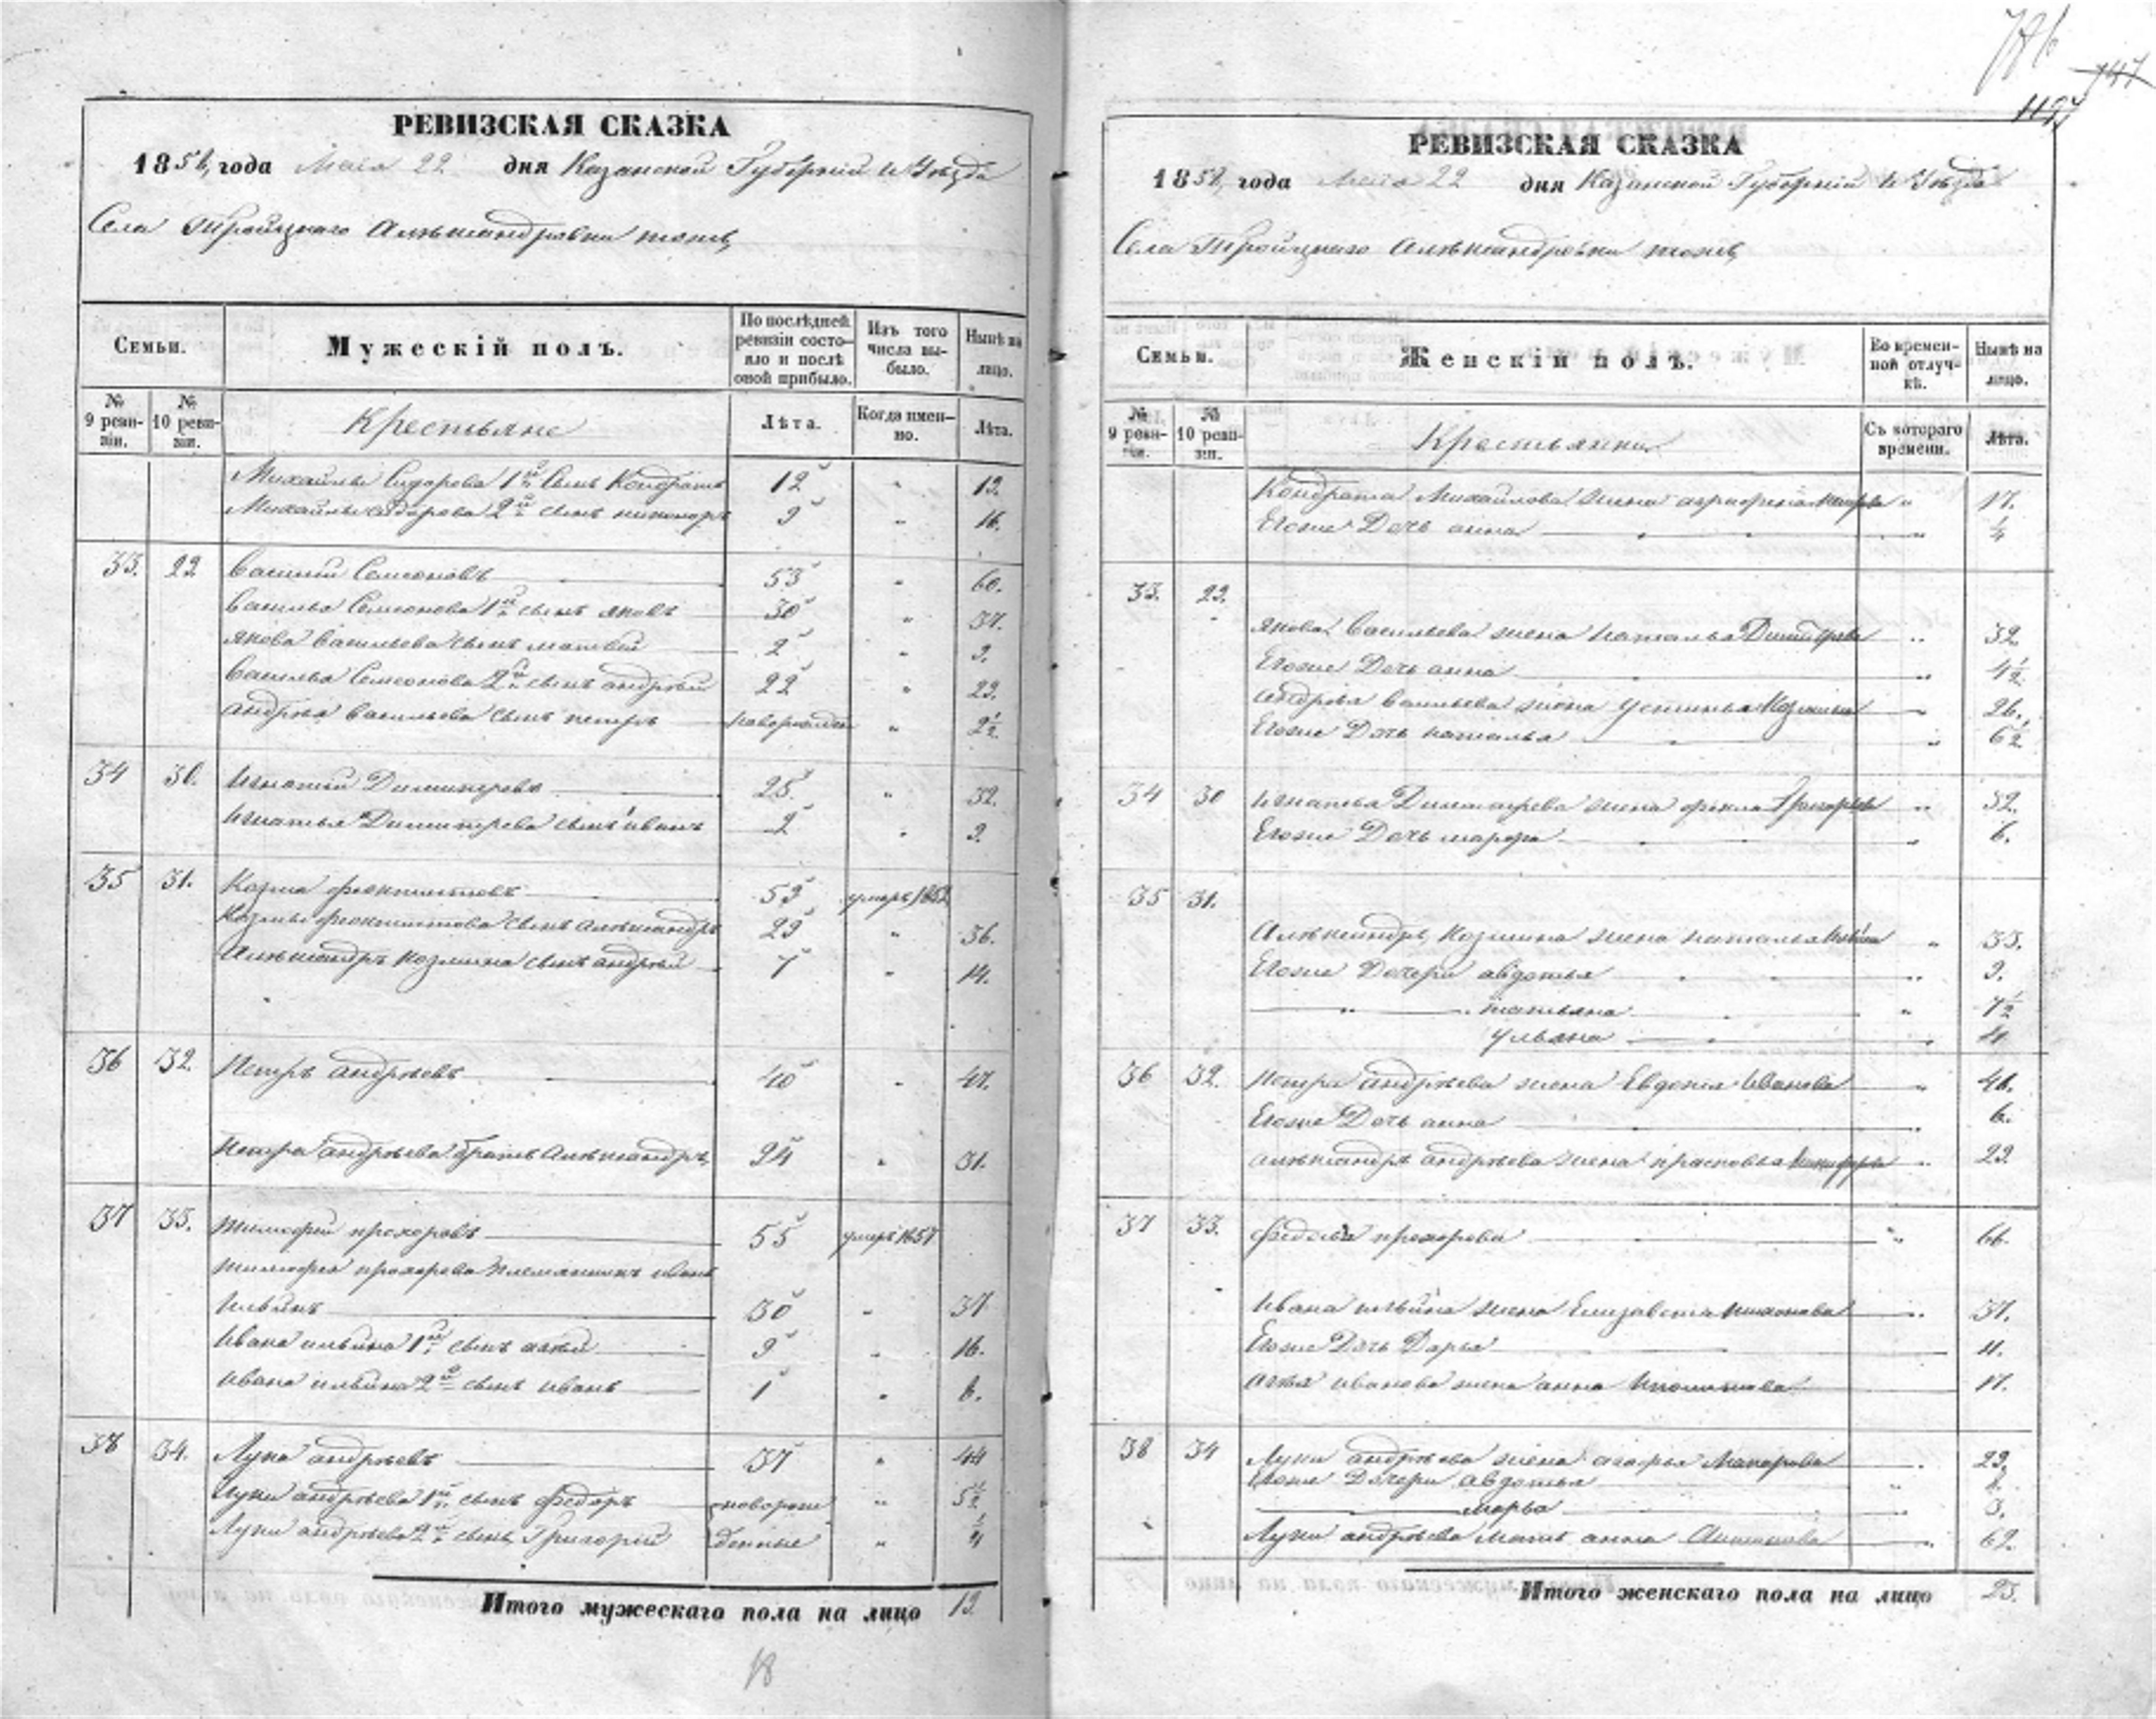 786
747
1127
РЕВИЗСКАЯ СКАЗКА
1858, года Мая 22 дня Казанской Губерніи и Уѣзда
Села Тройцкаго Алѣксандровки тожъ,
Семьи.
Мужескій полъ.
По послѣдней ревизіи состояло и послѣ оной прибыло.
Изъ того числа выбыло.
Нынѣ на лицо.
№ 9 ревизіи.
№ 10 ревизіи.
Крестьяне
Лѣта.
Когда именно.
Лѣта.
Михайлы Сидорова 1й Сынъ Кондратъ 12 " 19.
Михайлы Сидорова 2й сынъ никаноръ 9 " 16.
33. 29 Василій Семеоновъ 53 " 60.
Василья Семеонова 1й сынъ яковъ 30 " 37.
якова Васильева сынъ матвей 2 " 9.
Василья Семеонова 2й сынъ андрѣй 22 " 29.
андрѣя Васильева сынъ петръ новорожден " 2½.
34 30. Игнатій Димитрево 25 " 32.
Игнатья Димитрева сынъ иванъ 2 " 9.
35 31. Козма феоктистовъ 59 умеръ 1852
Козмы феоктистова сынъ Алѣксандръ 29 " 36.
Алѣксандръ Козмина сынъ андрѣй 7 " 14.
36 32. Петръ андрѣевъ 40 " 47.
Петра андрѣева братъ Алѣксандръ, 24 " 31.
37 33. тимофей прохоровъ 55 умеръ 1857
тимофея прохорова племянникъ иванъ
Ильинъ 30 " 37
Ивана ильина 1й сынъ 9 " 16.
Ивана ильина 2й сынъ иванъ 1 " 8.
38 34. Лука андрѣевъ 37 " 44
Луки андрѣева 1й сынъ федоръ новорож " 5½
Луки андрѣева 2й сынъ Григорій денные " ¼
Итого мужескаго пола на лицо 19.
18
РЕВИЗСКАЯ СКАЗКА
1858, года Мая 22 дня Казанской Губерніи и Уѣзда
Села Тройцкаго Алѣксандровки тожъ,
Семьи.
Женскій полъ.
Во временной отлучкѣ.
Нынѣ на лицо.
№ 9 ревизіи.
№ 10 ревизіи.
Крестьянки
Съ котораго времени.
Лѣта.
Кондрата Михайлова жена " 17.
Егоже Дочь анна " ¼
33. 29.
якова Васильева жена наталья " 32
Егоже Дочь анна " 4½
андрѣя Васильева жена устинья Козмина " 26.
Егоже Дочь наталья " 6½
34 30 Игнатья Димитрева жена фекла Григорьева " 32.
Егоже Дочь марфа " 6.
35 31.
Алѣксандръ Козмина жена наталья " 35.
Егоже Дочери авдотья " 9.
татьяна " 7½
ульяна " 4
36 32. Петра андрѣева жена Евдокія Иванова " 48.
Егоже Дочь анна " 6.
алѣксандръ андрѣева жена прасковья " 29
37 33. прохорова " 66.
Ивана ильина жена Елизавета " 37.
Егоже Дочь Дарья 11.
иванова жена анна 17.
38 34 Луки андрѣева жена агафья Макарова " 29.
Егоже Дочери авдотья "
марья " 3.
Луки андрѣева мать анна " 62.
Итого женскаго пола на лицо 23.